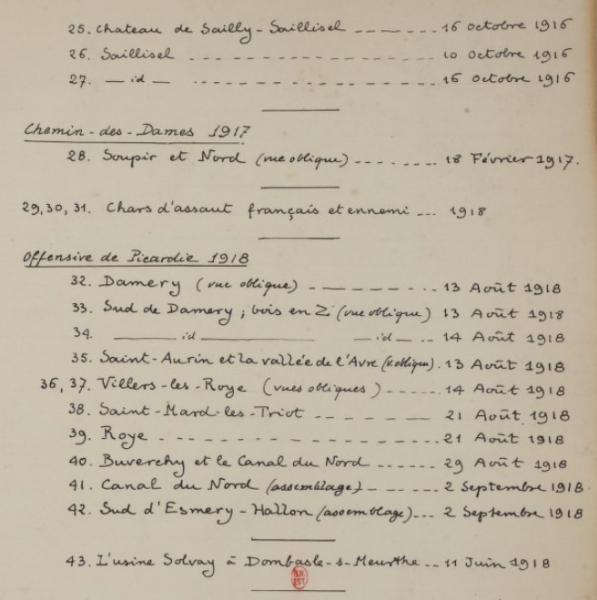 25. Chateau de Sailly-Saillisel ------ 16 octobre 1916
26. Saillisel ---------- 10 octobre 1916
27. — id — ---------- 16 octobre 1916
Chemin-des-Dames 1917
28. Soupir et Nord (vue oblique) ------ 18 Février 1917.
29,30,31. Chars d'assaut français et ennemi --- 1918
Offensive de Picardie 1918
32. Damery (vue oblique) ------- 13 Août 1918
33. Sud de Damery ; bois en Z (vue oblique) 13 Août 1918
34. ———— id ———— — id — -- 14 Août 1918
35. Saint-Aurin et la vallée de l'Avre (v. oblique). 13 Août 1918
36, 37. Villers-les-Roye (vues obliques) ----- 14 Août 1918
38. Saint-Mard-les-Triot ------ 21 Août 1918
39. Roye ------------ 21 Août 1918
40. Buverchy et le Canal du Nord ------ 29 Août 1918
41. Canal du Nord (assemblage) ----- 2 Septembre 1918.
42. Sud d'Esmery-Hallon (assemblage)--- 2 Septembre 1918
43. L'usine Solvay à Dombasle-s-Meurthe -- 11 Juin 1918